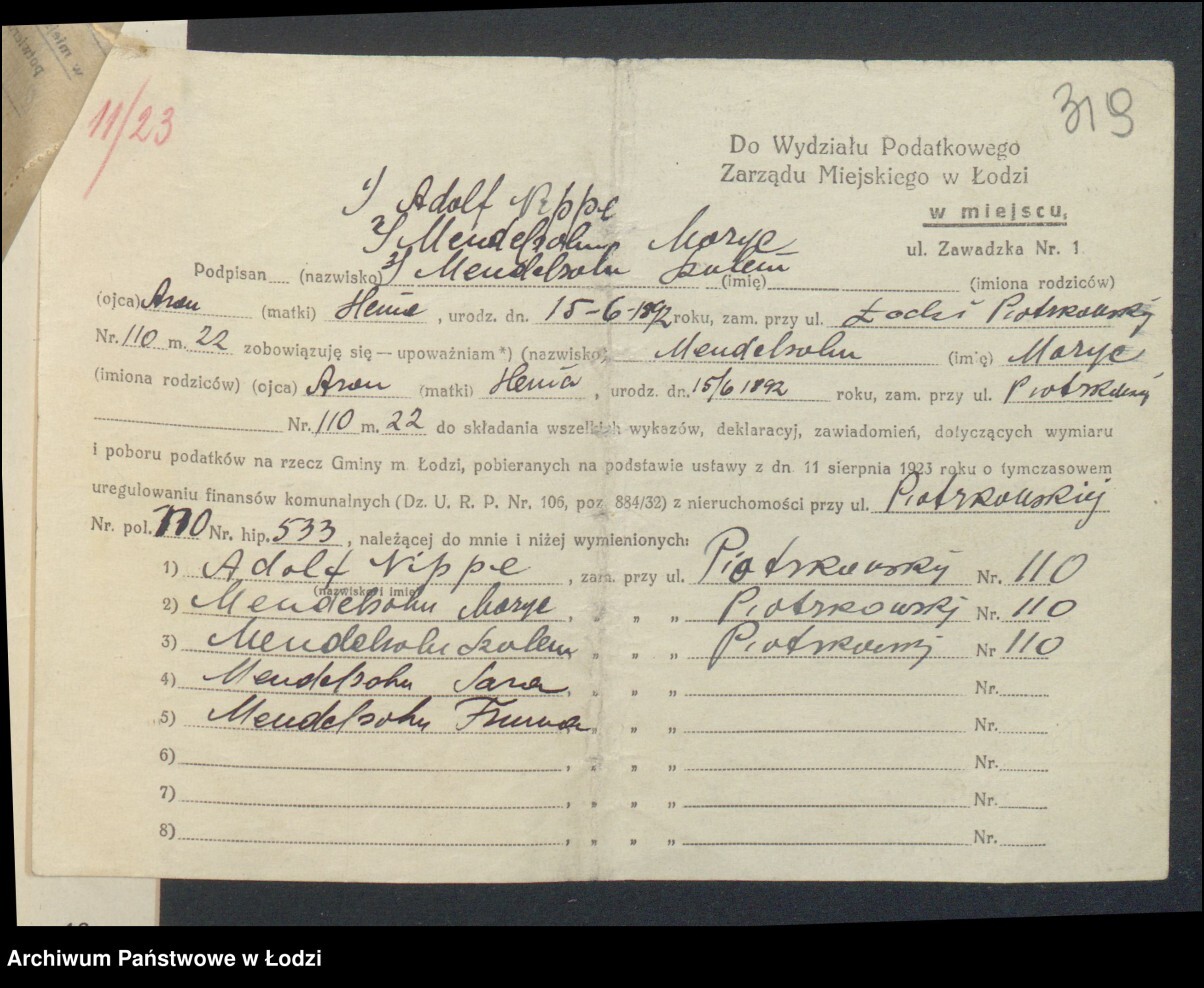 11/23
319
Do Wydziału Podatkowego
Zarządu Miejskiego w Łodzi
w miejscu,
ul. Zawadzka Nr. 1
1/ Adolf Nippe
2/ Mendelsohn Moryc
Podpisan (nazwisko) 3/ Mendelsohn Szolem (imię) (imiona rodziców)
(ojca) Aron (matki) Henia, urodz. dn. 15-6-1892 roku, zam. przy ul. Piotrkowskiej
Nr. 110 m. 22 zobowiązuję się — upoważniam *) (nazwisko) Mendelsohn (imię) Moryc
(imiona rodziców) (ojca) Aron (matki) Henia, urodz. dn. 15/6 1892 roku, zam. przy ul. Piotrkowskiej
Nr. 110 m. 22 do składania wszelkich wykazów, deklaracyj, zawiadomień, dotyczących wymiaru
i poboru podatków na rzecz Gminy m. Łodzi, pobieranych na podstawie ustawy z dn. 11 sierpnia 1923 roku o tymczasowem
uregulowaniu finansów komunalnych (Dz. U. R. P. Nr. 106, poz. 884/32) z nieruchomości przy ul. Piotrkowskiej
Nr. pol. 110 Nr. hip. 533, należącej do mnie i niżej wymienionych:
1) Adolf Nippe, zam. przy ul. Piotrkowskiej Nr. 110
(nazwisko i imię)
2) Mendelsohn Moryc, „ „ „ Piotrkowskiej Nr. 110
3) Mendelsohn Szolem, „ „ „ Piotrkowskiej Nr 110
4) Mendelsohn Sara, „ „ „ Nr.
5) Mendelsohn „ „ „ Nr.
6) , „ „ „ Nr.
7) , „ „ „ Nr.
8) , „ „ „ Nr.
Archiwum Państwowe w Łodzi